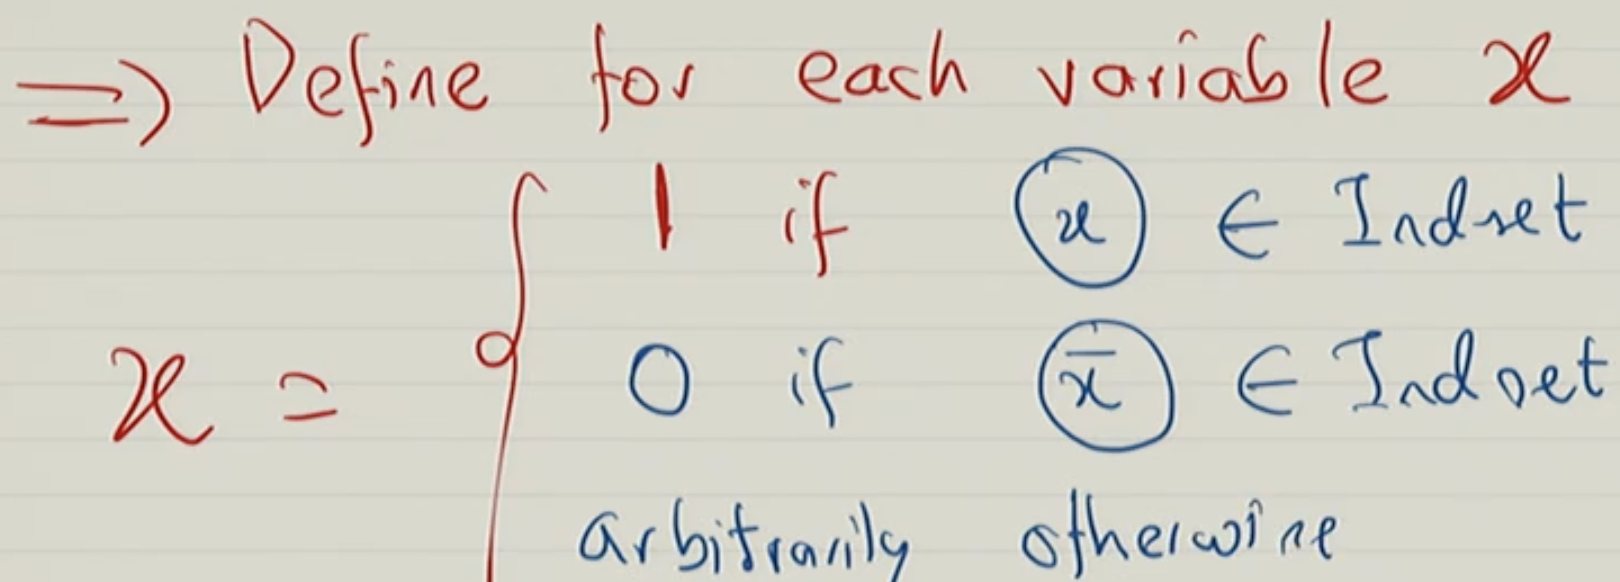 ⇒ Define for each variable x
1 if x ∈ Indset
x = { 0 if x̄ ∈ Indset
arbitrarily otherwise